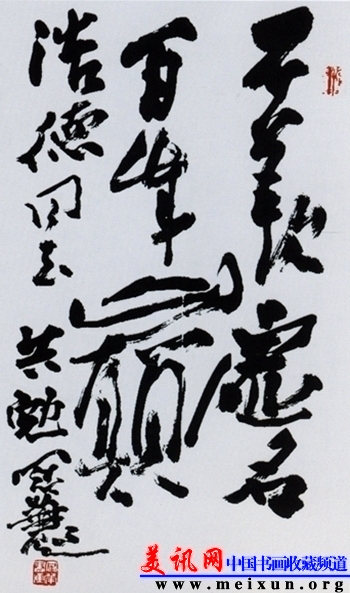 不羡虚名
百峯巅
浩德同志 共勉
美讯网 中国书画收藏频道
www.meixun.org